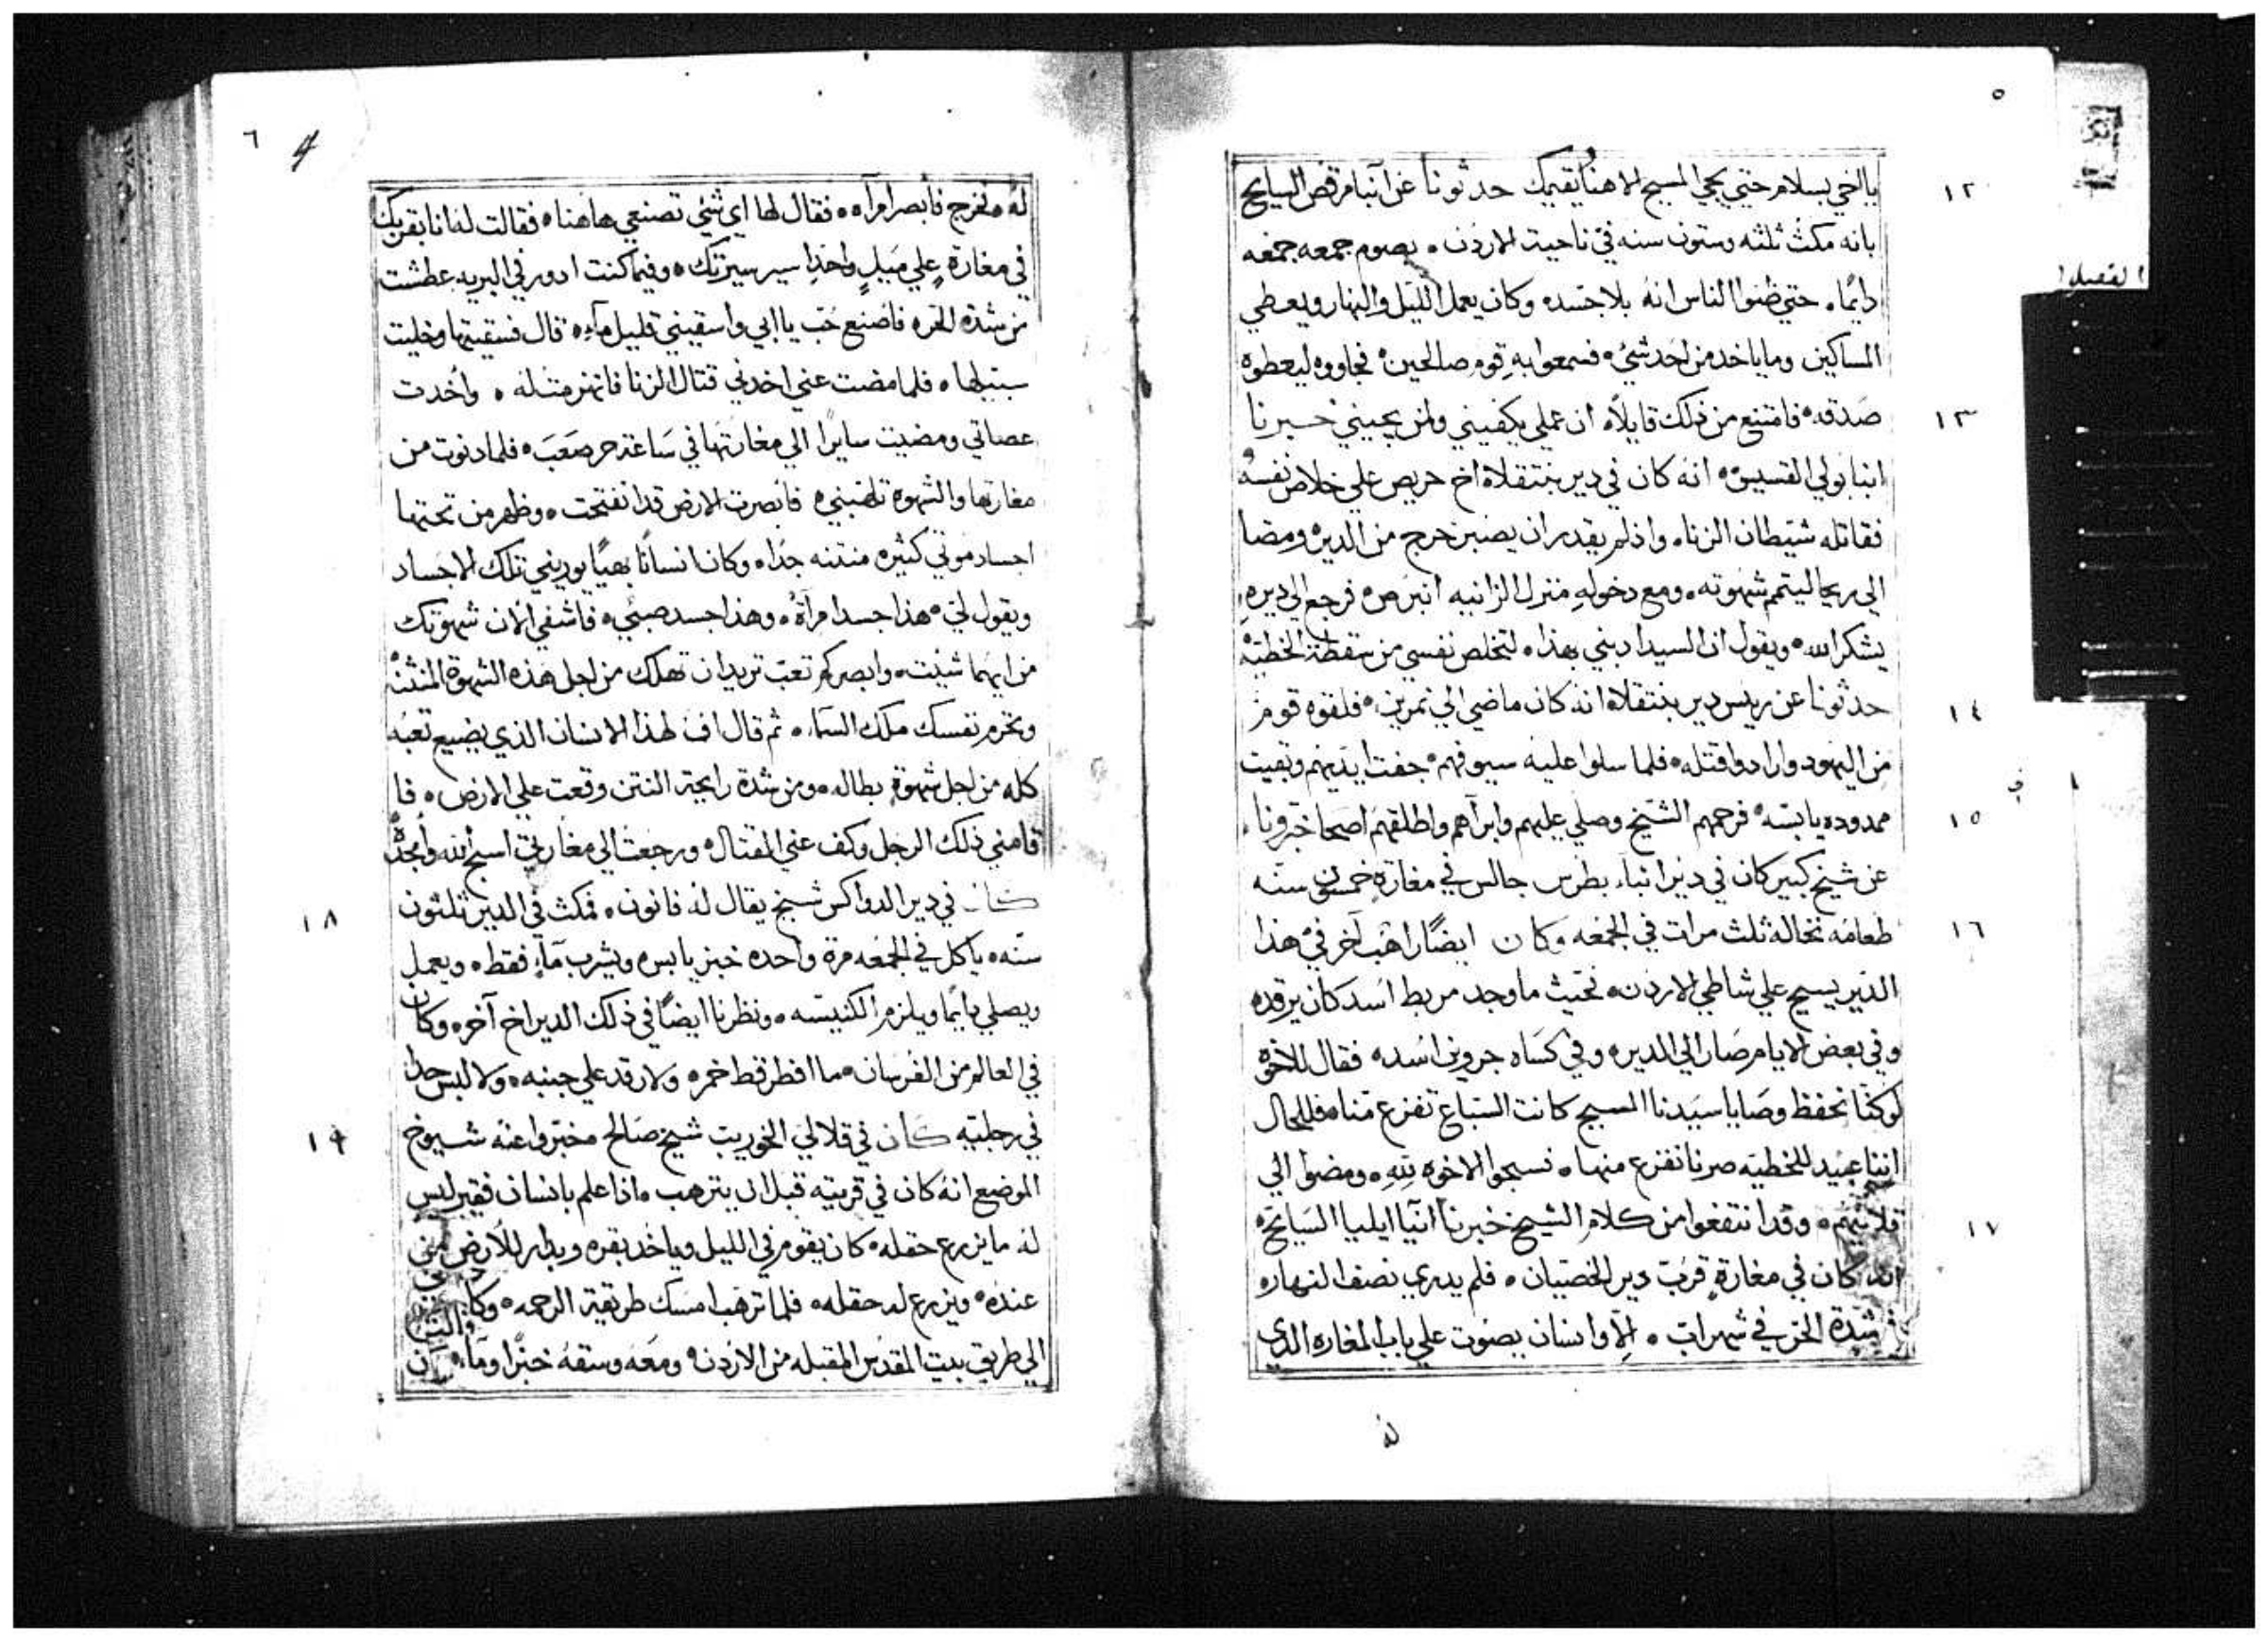 ٥
يا اخي بسلام حتي يجي المسيح الا هنا يقيمك حدثونا عن انبا مرقص السايح
١٢
بانه مكث ثلثه وستون سنه في ناحية الاردن • يصوم جمعه جمعه
دايمًا • حتي ظنوا الناس انه بلا جسد • وكان يعمل الليل والنهار ويعطي
المساكين وما ياخد من احد شيء • فسمعوا به قوم صالحين • فجاووه ليعطوه
صدقه • فامتنع من ذلك قايلاً • ان عملي يكفيني ولمن يجيني خبرنا
١٣
انبا بولي القسيس • انه كان في دير بنتقلاه اخ حريص علي خلاص نفسه
فقاتله شيطان الزنا • واذ لم يقدر ان يصبر خرج من الدير • ومضا
الي ريحا ليتمم شهوته • ومع دخوله منزل الزانيه انبرص • فرجع الي ديره
يشكر الله • ويقول ان السيد ادبني بهذا • لتخلص نفسي من سقطة الخطيه
حدثونا عن ريس دير بنتقلاه انه كان ماضي الي نمرين • فلقوه قوم
١٤
من اليهود وارادوا قتله • فلما سلوا عليه سيوفهم • جفت ايديهم وبقيت
ممدوده يابسه • فرحمهم الشيخ وصلي عليهم وابراهم واطلقهم اصحا خبرونا
١٥
عن شيخ كبير كان في دير انبا بطرس جالس في مغارة خمسون سنه
طعامه نخاله ثلث مرات في الجمعه • وكان ايضًا راهب آخر في هذا
١٦
الدير يسيح علي شاطي الاردن • فحيث ما وجد مربط اسد كان يرقده
وفي بعض الايام صار الي الدير • وفي كساه جروين اسد • فقال للاخوة
لو كنا نحفظ وصايا سيدنا المسيح كانت السباع تفزع منا • فللحال
اننا عبيد للخطيه صرنا نفزع منها • فسبحوا الاخوه لله • ومضوا الي
قلاليهم • وقد انتفعوا من كلام الشيخ خبرنا انبا ايليا السايح
١٧
انه كان في مغارة قرب دير الخصيان • فلم يدري نصف النهار •
شدة الحر في شهر اب • الا وانسان يصوت علي باب المغاره الذي
له
٦
له • فخرج فابصر امرآه • فقال لها اي شي تصنعي هاهنا • فقالت له انا بقربك
في مغارة علي ميل واحد اسير سيرتك • وفيما كنت ادور في البريه عطشت
من شدة الحره فاصنع حب يا ابي واسقيني قليل مآء • قال فسقيتها وخليت
سبيلها • فلما مضت عني اخدني قتال الزنا فانهزمت له • واخدت
عصاتي ومضيت سايرًا الي مغارتها في ساعة حر صعب • فلما دنوت من
مغارتها والشهوة تلهبني • فابصرت الارض قد انفتحت • وظهر من تحتها
اجساد موتي كثيره منتنه جدًا • وكان انسانًا بهيًا يوريني تلك الاجساد
ويقول لي • هذا جسد امرآة • وهذا جسد صبي • فاشفي الان شهوتك
من ايهما شيت • وابصر كم تعب تريد ان تهلك من اجل هذه الشهوة المنتنه
وتحرم نفسك ملك السماء • ثم قال اف لهذا الانسان الذي يضيع تعبه
كله من اجل شهوة بطاله • ومن شدة رايحة النتن وقعت علي الارض • فا
قامني ذلك الرجل وكف عني القتال • ورجعت الي مغارتي اسبح الله وامجده
كان في دير الدواكس شيخ يقال له قانون • فمكث في الدير ثلثون
١٨
سنه • ياكل في الجمعه مرة واحده خبز يابس ويشرب مآء فقط • ويعمل
ويصلي دايمًا ويلزم الكنيسه • ونظرنا ايضًا في ذلك الدير اخ آخر • وكان
في العالم من الفرسان • ما افطر قط خمر • ولا رقد علي جنبه • ولا لبس حدا
في رجليه كان في قلالي الخوريت شيخ صالح مخبروا عنه شيوخ
١٩
الموضع انه كان في قريته قبل ان يترهب • اذا علم بانسان فقير ليس
له ما يزرع حقله • كان يقوم في الليل وياخد بقره وبدار للارض من
عنده • ويزرع له حقله • فلما ترهب امسك طريقة الرحمه • وكان
الي طريق بيت المقدس المقبله من الاردن • ومعه وسقه خبزًا ومآء •